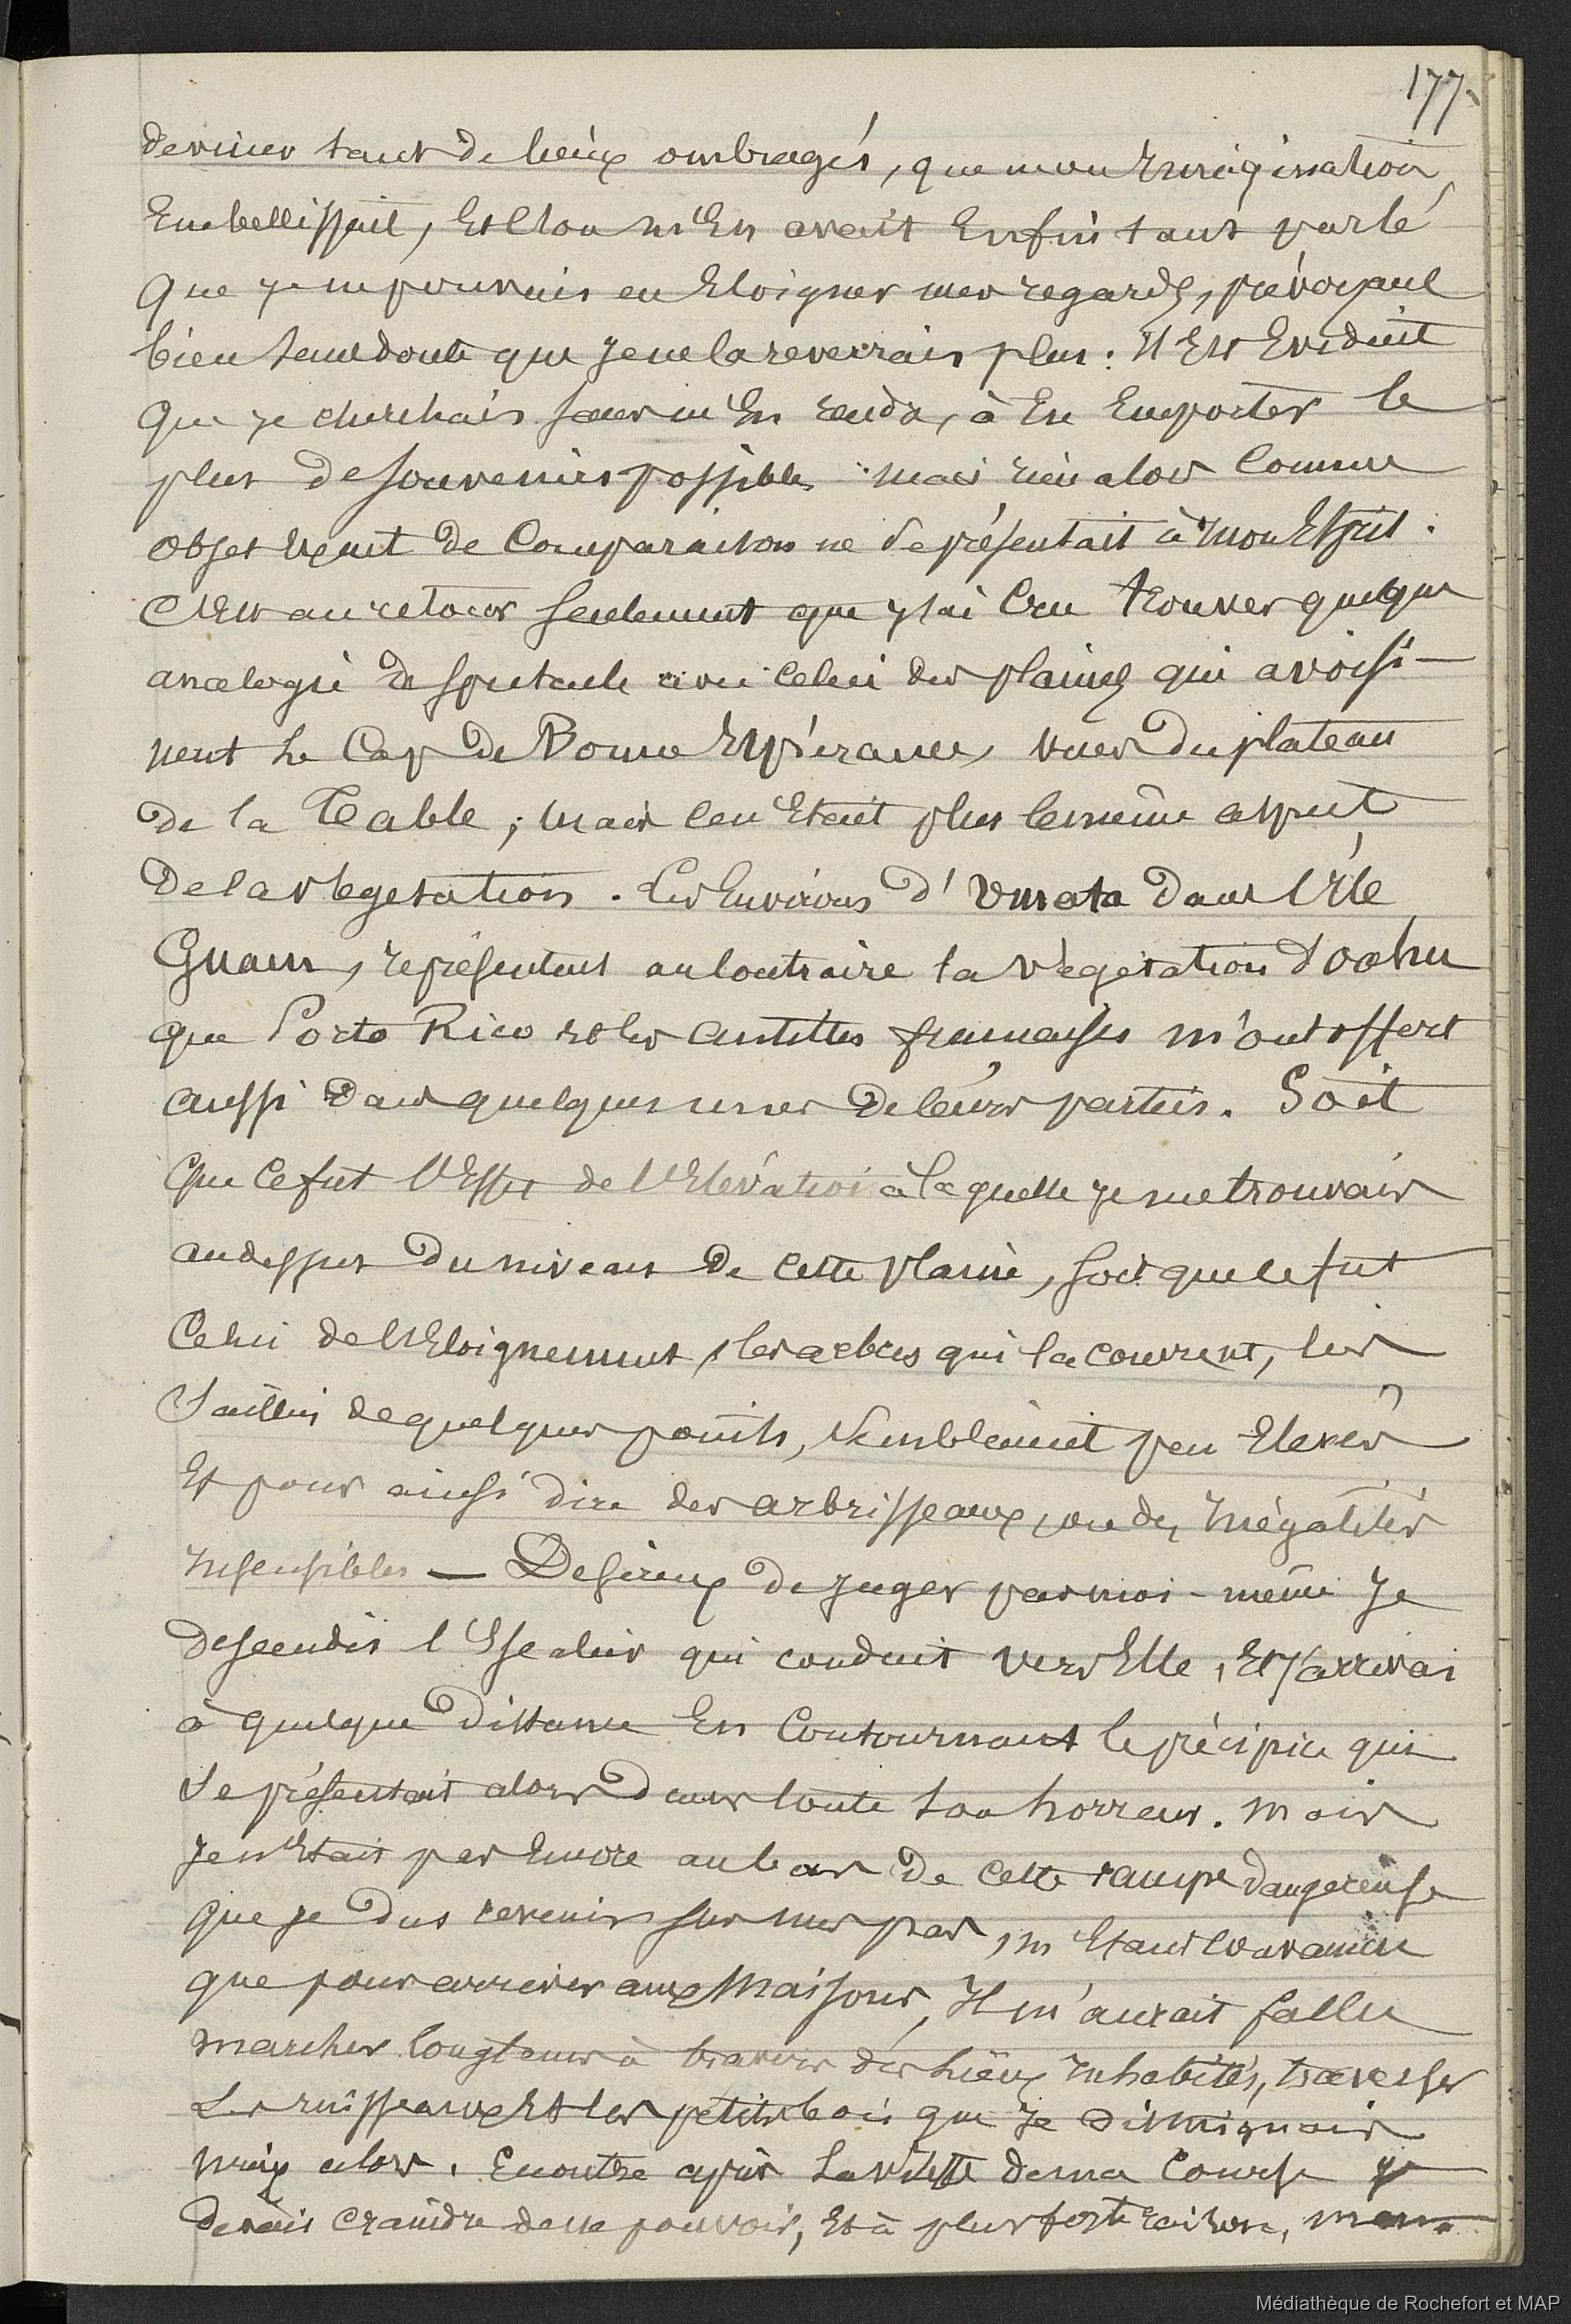 177.
deviner tant de lieux ombragés, que mon Imagination,
Embellissait, Et l'on m'En avait Enfin tant parlé
que je ne pouvais en Eloigner mes regards, prévoyant
bien sans doute que je ne la reverrais plus: Il Est Evident
que je cherchais sans m'En rendre, à En Emporter le
plus de souvenirs possibles mais rien alors comme
objet de Comparaison ne se présentait à mon Esprit.
C'Est au retour seulement que j'ai Cru trouver quelque
analogie de spectacle avec Celui des plaines qui avoisi-
nent le Cap de Bonne Espérance, vues du plateau
de la Table; mais c'en Etait plus le même aspect
de la végétation. Les Environs d'Umata dans l'Ile
Guam, représentent au contraire la végétation d'oahu
que Porto Rico et les antilles françaises m'ont offert
aussi dans quelques unes de leurs parties. Soit
que ce fut l'Effet de l'Elévation à laquelle je me trouvais
au dessus du niveau de cette plaine, soit que ce fut
Celui de l'Eloignement, les arbres qui la couvrent, les
saillies de quelques points, semblaient peu Elevés
Et pour ainsi dire des arbrisseaux, ou des Inégalités
Insensibles — Desireux de juger par moi-même Je
descendis l'Escalier qui conduit vers Elle, Et j'arrivai
à quelque distance En Contournant le précipice qui
se présentait alors dans toute son horreur. Mais
Je n'Etais pas Encore au bas de cette rampe dangereuse
que je dus revenir sur mes pas, m'Etant Convaincu
que pour arriver aux Maisons, Il m'aurait fallu
marcher longtems à travers des lieux Inhabités, traverser
Les ruisseaux Et les petits bois que je distinguais
mieux alors. En outre après la vitesse de ma Course je
devais craindre de ne pouvoir, Et à plus forte raison,
Médiathèque de Rochefort et MAP